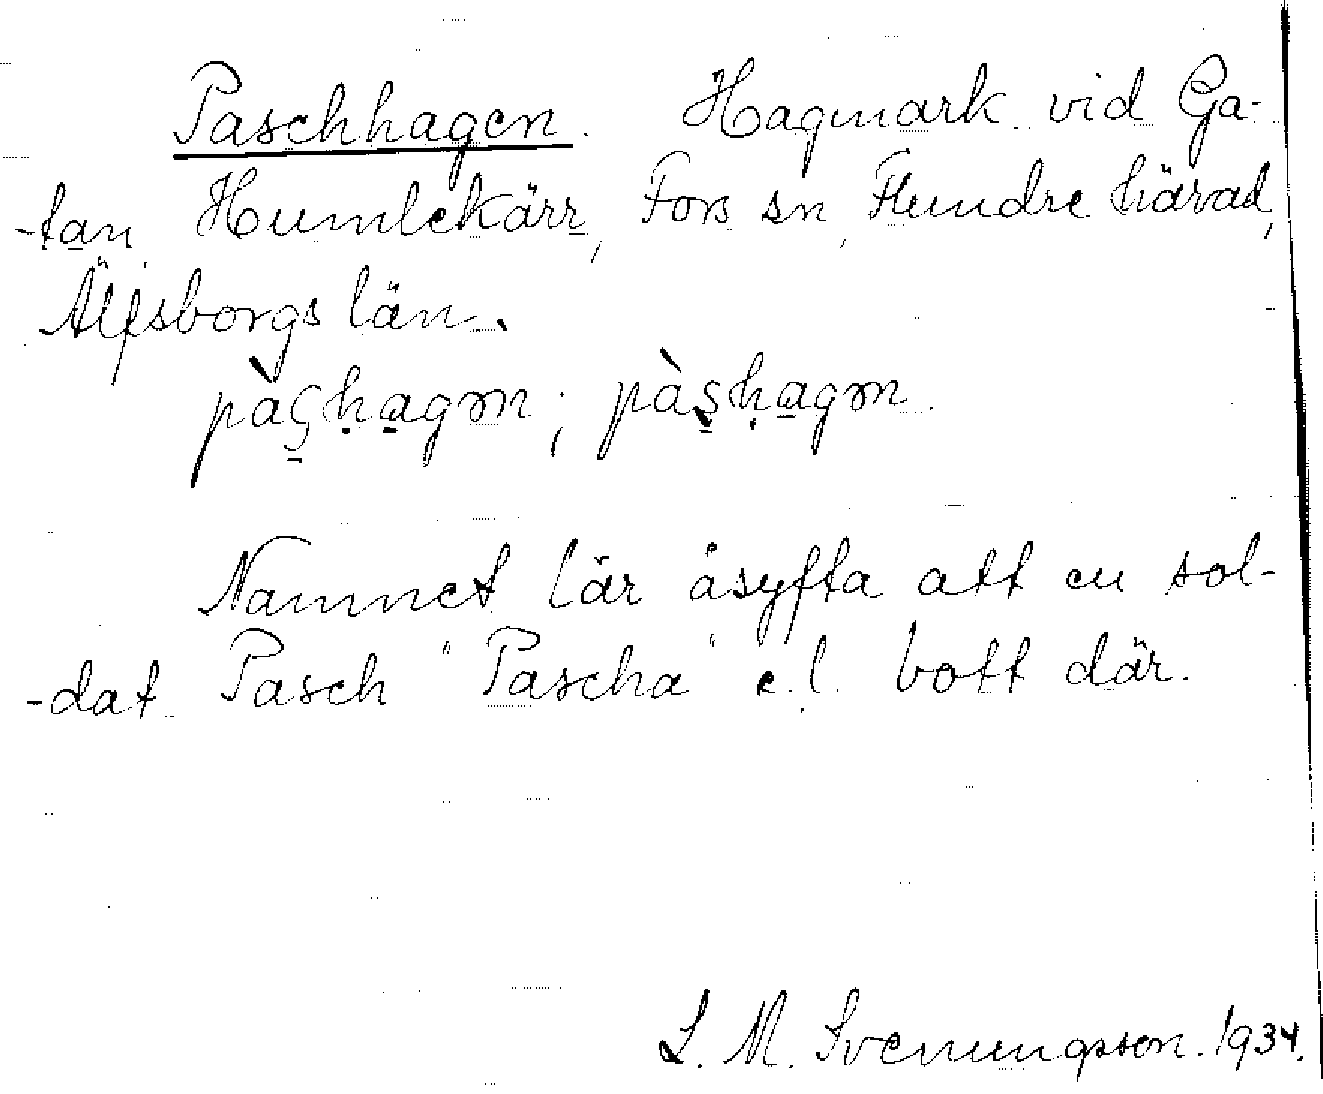 Paschhagen. Hagmark vid Ga-
-tan Humlekärr, Fors sn, Flundre härad,
Älfsborgs län.
pàʂhagən; pàʂhagən.
Namnet lär åsyfta att en sol-
-dat Pasch "Pascha" e.l. bott där.
L. M. Svenungsson. 1934.